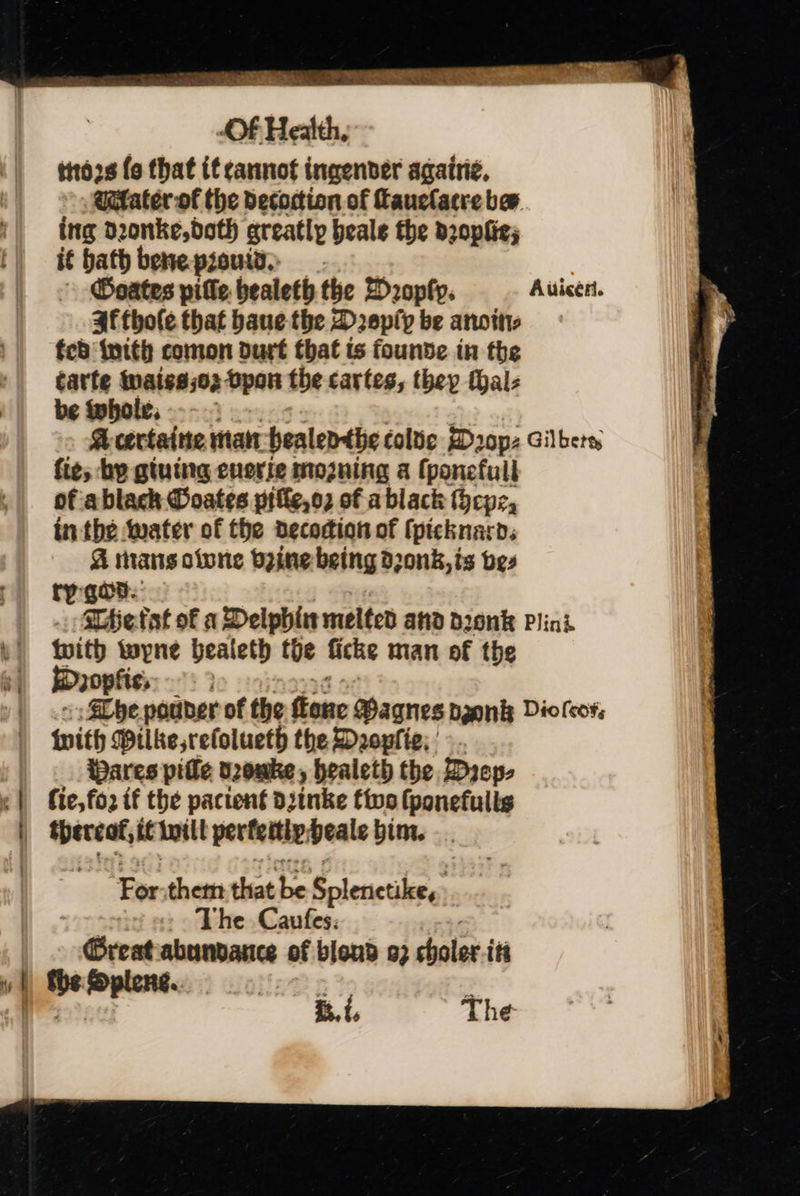 Of Health.
mors so that it cannot ingender againe.
Water of the decoction of stauesacre bee
ing dronke, doth greatly heale the dropsie;
it hath bene prouid.
Goates pisse healeth the Dropsy. Auicen.
If those that haue the Dropsy be anoin-
ted with comon durt that is founde in the
carte waies, or vpon the cartes, they shal-
be whole.
A certaine man healed the colde Drop- Gilbert,
sie, by giuing euerie morning a sponefull
of a black Goates pisse, or of a black shepe,
in the water of the decoction of spicknard.
A mans owne vrine being dronk, is ve-
ry good.
The fat of a Delphin melted and dronk Plini.
with wyne healeth the sicke man of the
Dropsie.
The pouder of the stone Magnes dronk Dioscor,
with Milke, resolueth the Dropsie.
Mares pisse dronke, healeth the Drop-
sie, for if the pacient drinke two sponefulls
thereof, it will perfectly heale him.
For them that be Splenetike,
The Causes.
Great abundance of bloud or choler in
the Splene.
K.i. The